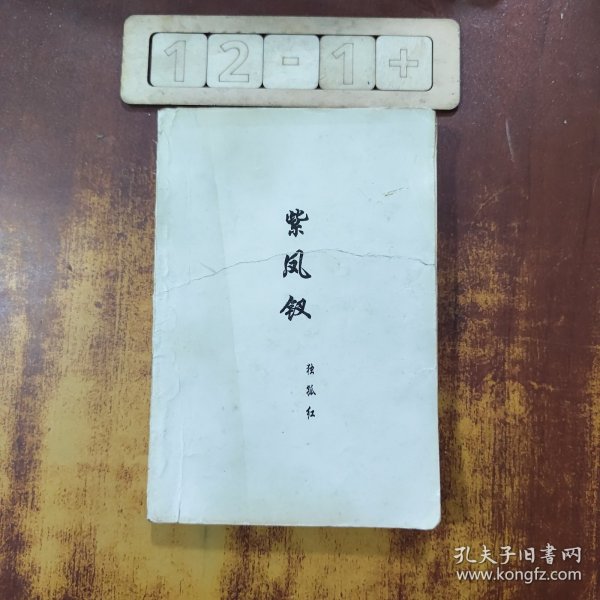 12-1+
紫凤钗
独孤红
孔夫子旧書网
www.kongfz.com